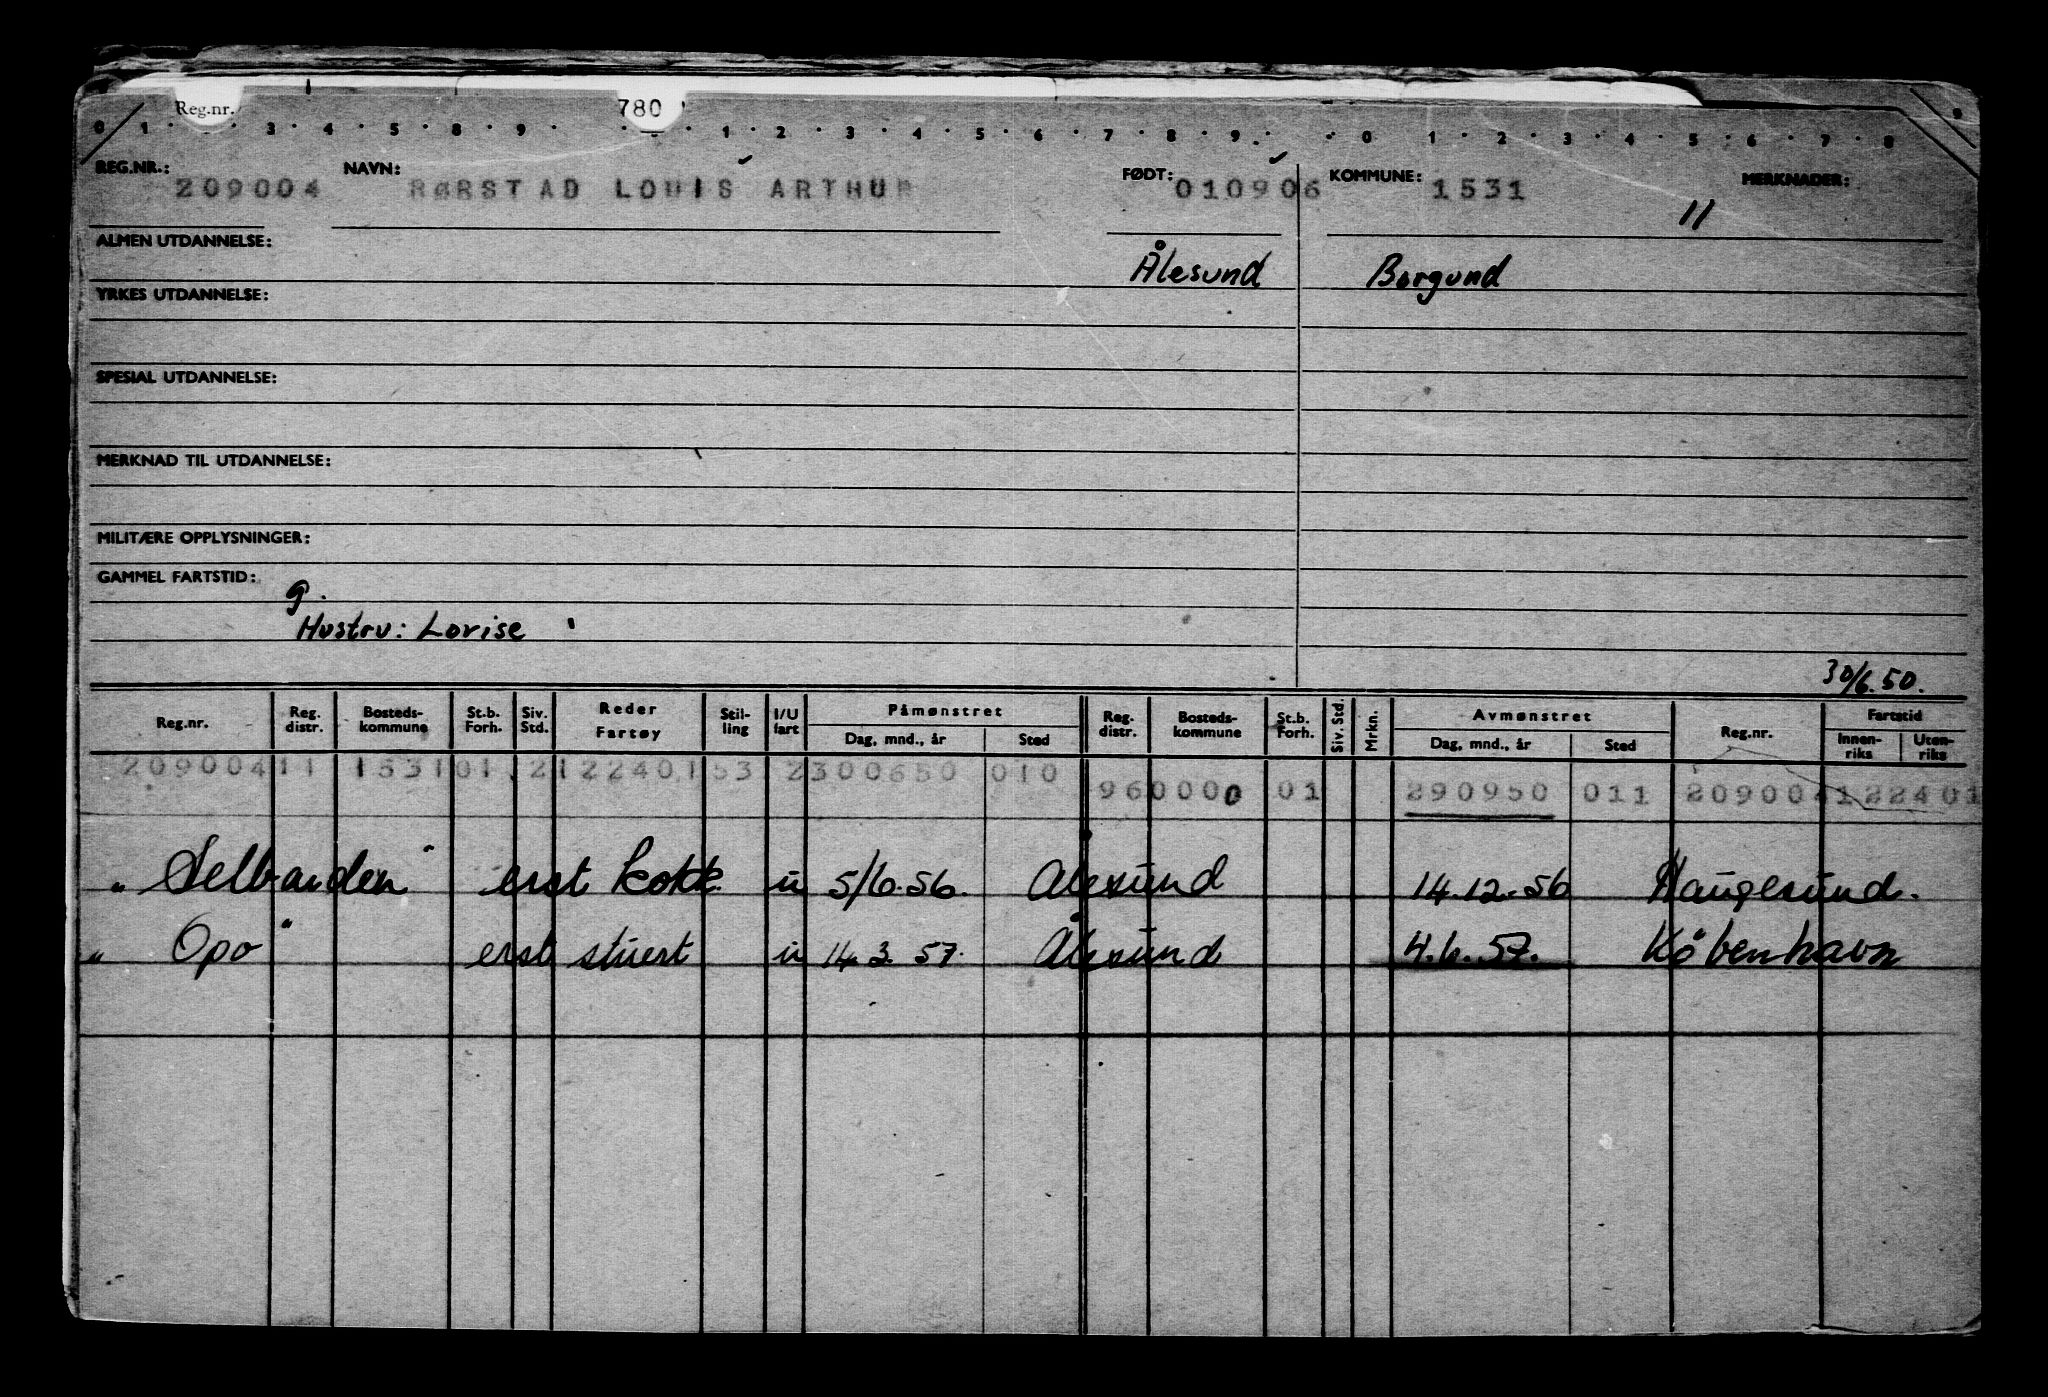 Reg.nr. 780
0 1 3 4 5 8 9 1 2 3 4 5 6 7 8 9 0 1 2 3 4 5 6 7 8 9
REG.NR.: 209004 NAVN: RØRSTAD LOUIS ARTHUR FØDT: 010906 KOMMUNE: 1531 MERKNADER:
11
ALMEN UTDANNELSE: Ålesund Borgund
YRKES UTDANNELSE:
SPESIAL UTDANNELSE:
MERKNAD TIL UTDANNELSE:
MILITÆRE OPPLYSNINGER:
GAMMEL FARTSTID: g.
Hustru: Lovise
30/6.50.
Reg.nr. Reg. distr. Bosteds-kommune St.b. Forh. Siv. Std. Reder Fartøy Stil-ling I/U fart Påmønstret Dag, mnd., år Sted Reg. distr. Bosteds-kommune St.b. Forh. Siv. Std. Mrkn. Avmønstret Dag, mnd., år Sted Reg.nr. Fartstid Innen-riks Uten-riks
209004 11 1531 01 2 122401 53 2 300650 010
960000 01 290950 011 209004 122401
" Selbarden " erst kokk u 5/6.56. Ålesund 14.12.56 Haugesund.
" Opo " erst stuert u 14.3.57. Ålesund 4.6.57. København